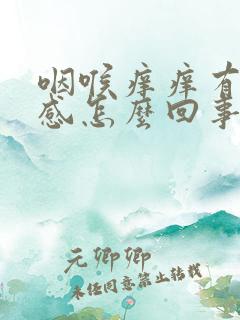 咽喉痒痒有
感怎麽回事
元卿卿
未经同意禁止转载